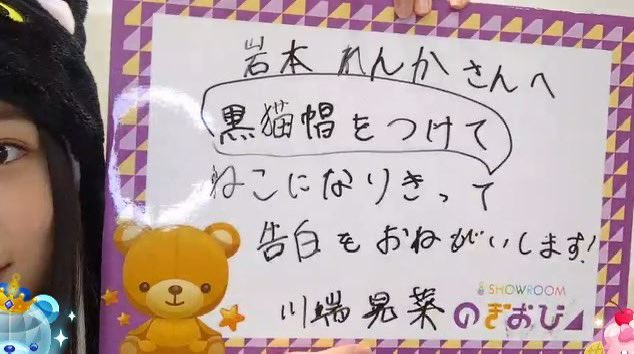 岩本 れんか さんへ
黒猫帽をつけて
ねこになりきって
告白をおねがいします!
川端 晃菜
SHOWROOM
のぎおび